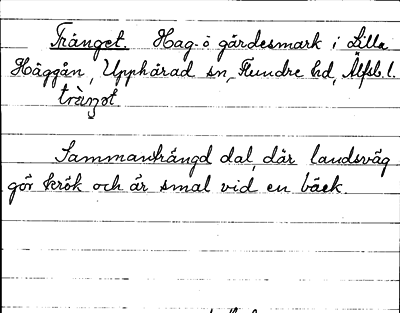 Trånget. Hag- o gärdesmark i Lilla
Häggån, Upphärad sn, Flundre hd, Älfsb. l.
tràŋot
Sammanträngd dal, där landsväg
gör krök och är smal vid en bäck.